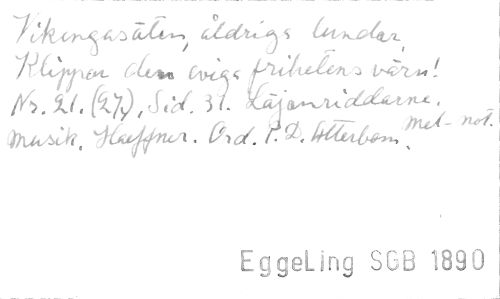 Vikingasäten, åldriga lundar,
Klippor den eviga frihetens värn!
Nr. 21. (27), Sid. 31.
Musik. Haeffner. Ord. P. D. Atterbom. Mel-not.
EggeLing SGB 1890